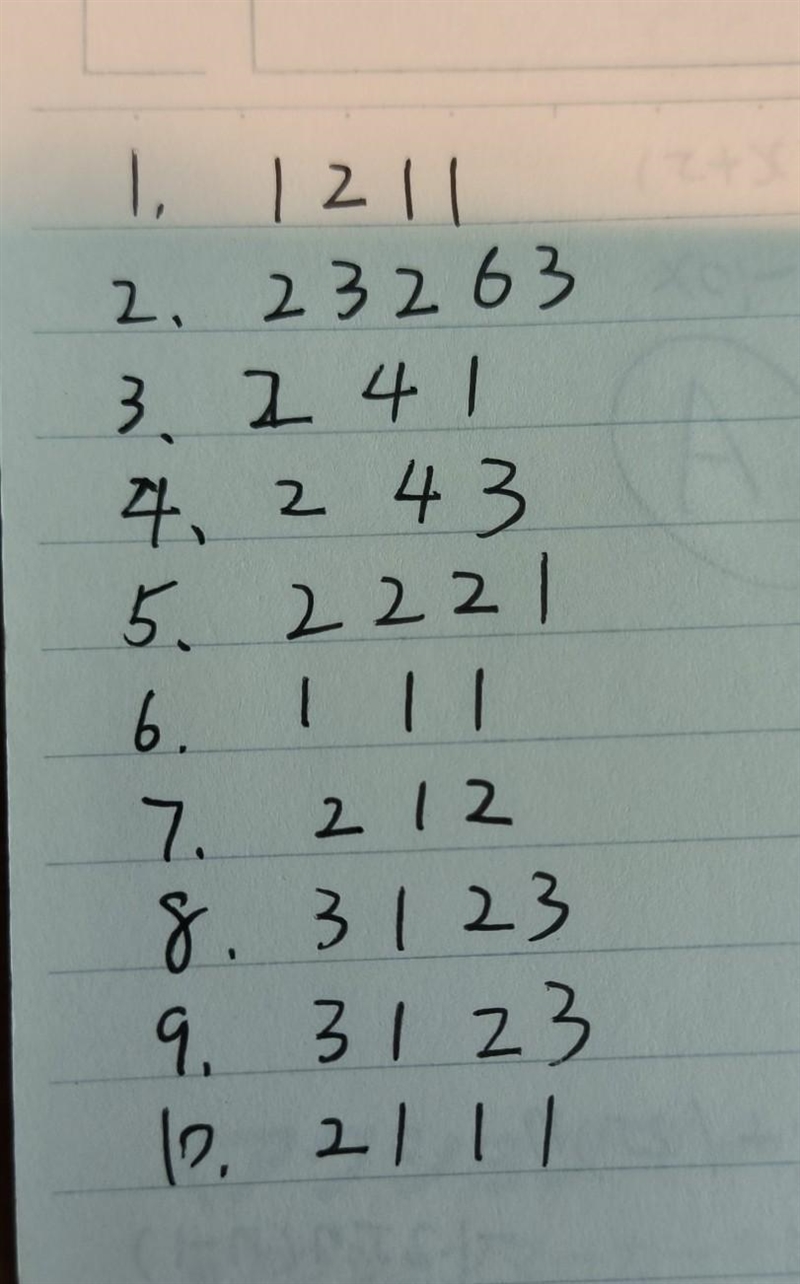 1. 1 2 1 1
2、 2 3 2 6 3
3、 2 4 1
4、 2 4 3
5、 2 2 2 1
6. 1 1 1
7. 2 1 2
8. 3 1 2 3
9. 3 1 2 3
10. 2 1 1 1